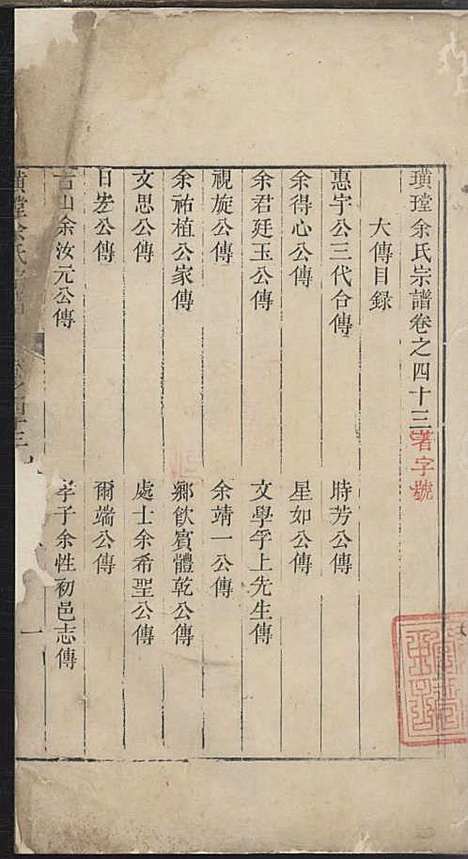 璜瑝余氏宗譜卷之四十三 著字號
大傳目錄
惠宇公三代合傳 時芳公傳
余得心公傳 星如公傳
余君廷玉公傳 文學孚上先生傳
視旋公傳 余靖一公傳
余祐植公家傳 鄉飲賓體乾公傳
文思公傳 處士余希聖公傳
日宏公傳 爾端公傳
吉山余汝元公傳 孝子余性初邑志傳
一